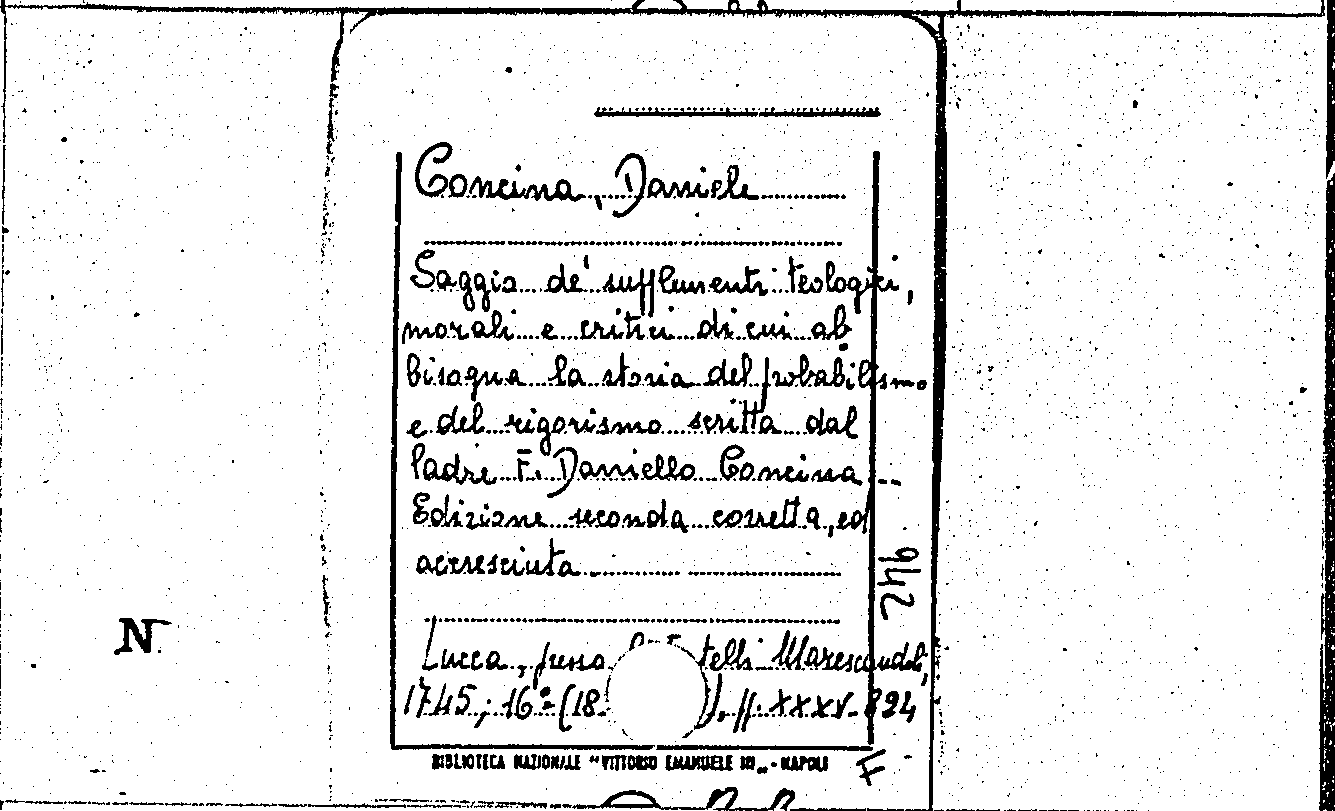 Concina, Daniele
Saggio de' supplementi teologici,
morali e critici di cui ab
bisogna la storia del probabilismo
e del rigorismo scritta dal
Padre F. Daniello Concina ...
Edizione seconda corretta, ed
accresciuta
946
N
Lucca, presso telli Marescandoli,
1745; 16°- (18. ), pp. XXXV-824
BIBLIOTECA NAZIONALE "VITTORIO EMANUELE III" - NAPOLI
F